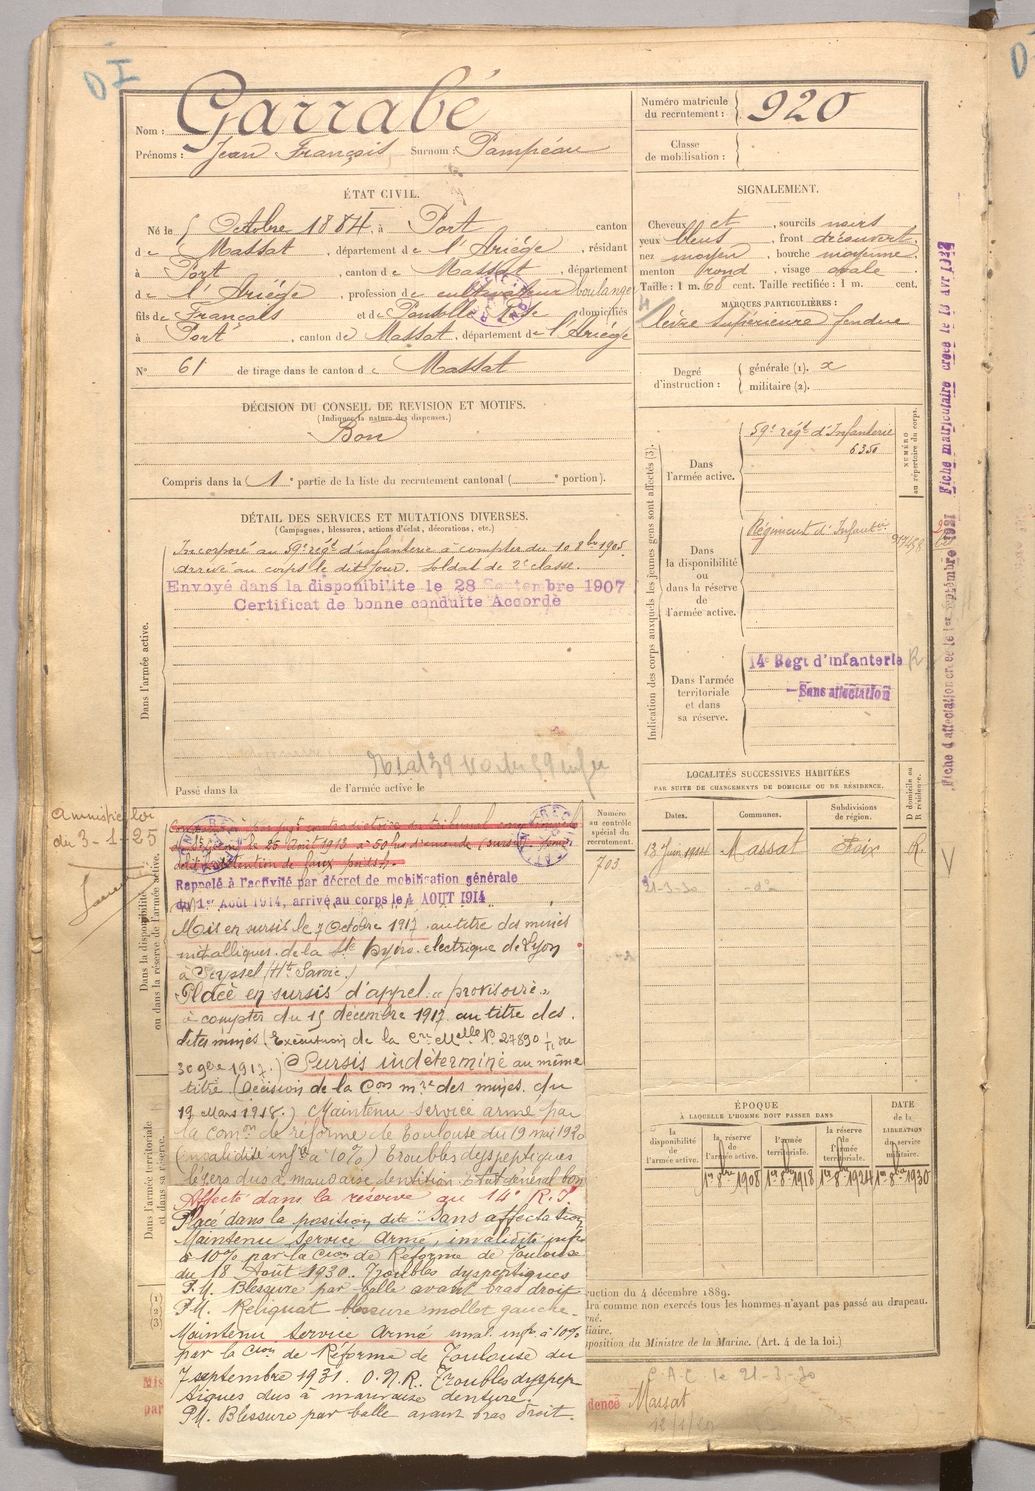 DI
Nom : Garrabé
Prénoms : Jean François Surnom : Pampéau
Numéro matricule du recrutement : 920
Classe de mobilisation :
ÉTAT CIVIL.
Né le 5 Octobre 1884, à Port canton
de Massat, département de l'Ariège, résidant
à Port, canton de Massat, département
de l'Ariège, profession de cultivateur boulanger
fils de François et de domiciliés
à Port, canton de Massat, département de l'Ariège
N° 61 de tirage dans le canton de Massat
SIGNALEMENT.
Cheveux et, sourcils noirs
yeux bleus, front découvert.
nez moyen, bouche moyenne.
menton rond, visage ovale.
Taille : 1 m. 60 cent. Taille rectifiée : 1 m. cent.
MARQUES PARTICULIÈRES :
lèvre supérieure fendue
Degré d'instruction : générale (1). x
militaire (2).
DÉCISION DU CONSEIL DE REVISION ET MOTIFS.
(Indiquer la nature des dispenses.)
Bon
Compris dans la 1e partie de la liste du recrutement cantonal ( e portion).
DÉTAIL DES SERVICES ET MUTATIONS DIVERSES.
(Campagnes, blessures, actions d'éclat, décorations, etc.)
Dans l'armée active.
Incorporé au 59e régt d'infanterie à compter du 10 8bre 1905.
Arrivé au corps le dit jour. Soldat de 2e classe.
Envoyé dans la disponibilité le 28 Septembre 1907
Certificat de bonne conduite Accordé
Passé dans la de l'armée active le
Indication des corps auxquels les jeunes gens sont affectés (3).
NUMÉRO au répertoire du corps.
Dans l'armée active.
59e régt d'Infanterie
6350
Dans la disponibilité ou dans la réserve de l'armée active.
Régiment d'Infanterie
Dans l'armée territoriale et dans sa réserve.
14e Regt d'infanterie R
Sans affectation
Fiche d'affectation créée le 1er septembre 1921 Fiche matriculaire créée le
LOCALITÉS SUCCESSIVES HABITÉES
PAR SUITE DE CHANGEMENTS DE DOMICILE OU DE RÉSIDENCE.
Dates. Communes. Subdivisions de région. D domicile ou R résidence.
Massat Foix R.
21-3-30 -do-
Numéro au contrôle spécial du recrutement.
703
Amnistie loi
du 3-1-25
Dans la disponibilité ou dans la réserve de l'armée active.
Rappelé à l'activité par décret de mobilisation générale
du 1er Août 1914, arrivé au corps le 4 AOUT 1914
Mis en sursis le 7 Octobre 1917 au titre des mines
métalliques de la Sté hydro électrique de Lyon
à Seyssel (Hte Savoie.)
Placé en sursis d'appel « provisoire »
à compter du 15 décembre 1917 au titre des
dites mines (Exécution de la Cre Melle N° 27890 du
30 9bre 1917.) Sursis indéterminé au même
titre (Décision de la Con mxte des mines du
19 Mars 1918.) Maintenu service armé par
la comon de réforme de Toulouse du 19 mai 1920
(invalidité infre à 10%) Troubles dyspeptiques
légers dus à mauvaise dentition. Etat général bon
Affecté dans la réserve au 14e R.I.
Placé dans la position dite "Sans affectation
Dans l'armée territoriale et dans sa réserve.
Maintenu Service Armé, invalidité infre
à 10% par la Cion de Réforme de Toulouse
du 18 Août 1930. Troubles dyspeptiques
P.M. Blessure par balle avant bras droit
P.M. Reliquat blessure mollet gauche.
Maintenu Service Armé inval. infre à 10%
par la Cion de Réforme de Toulouse du
7 septembre 1931. O.N.R. Troubles dyspep
tiques dus à mauvaise denture.
P.M. Blessure par balle avant bras droit.
ÉPOQUE
À LAQUELLE L'HOMME DOIT PASSER DANS
la disponibilité de l'armée active. la réserve de l'armée active. l'armée territoriale. la réserve de l'armée territoriale.
DATE de la LIBÉRATION du service militaire.
1er 8bre 1908 1er 8bre 1918 1er 8bre 1924 1er 8bre 1930
(1)
(2)
(3)
uction du 4 décembre 1889.
dra comme non exercés tous les hommes n'ayant pas passé au drapeau.
rné.
liaire.
position du Ministre de la Marine. (Art. 4 de la loi.)
Mis
par
dence Massat
C.A.C. le 21-3-30